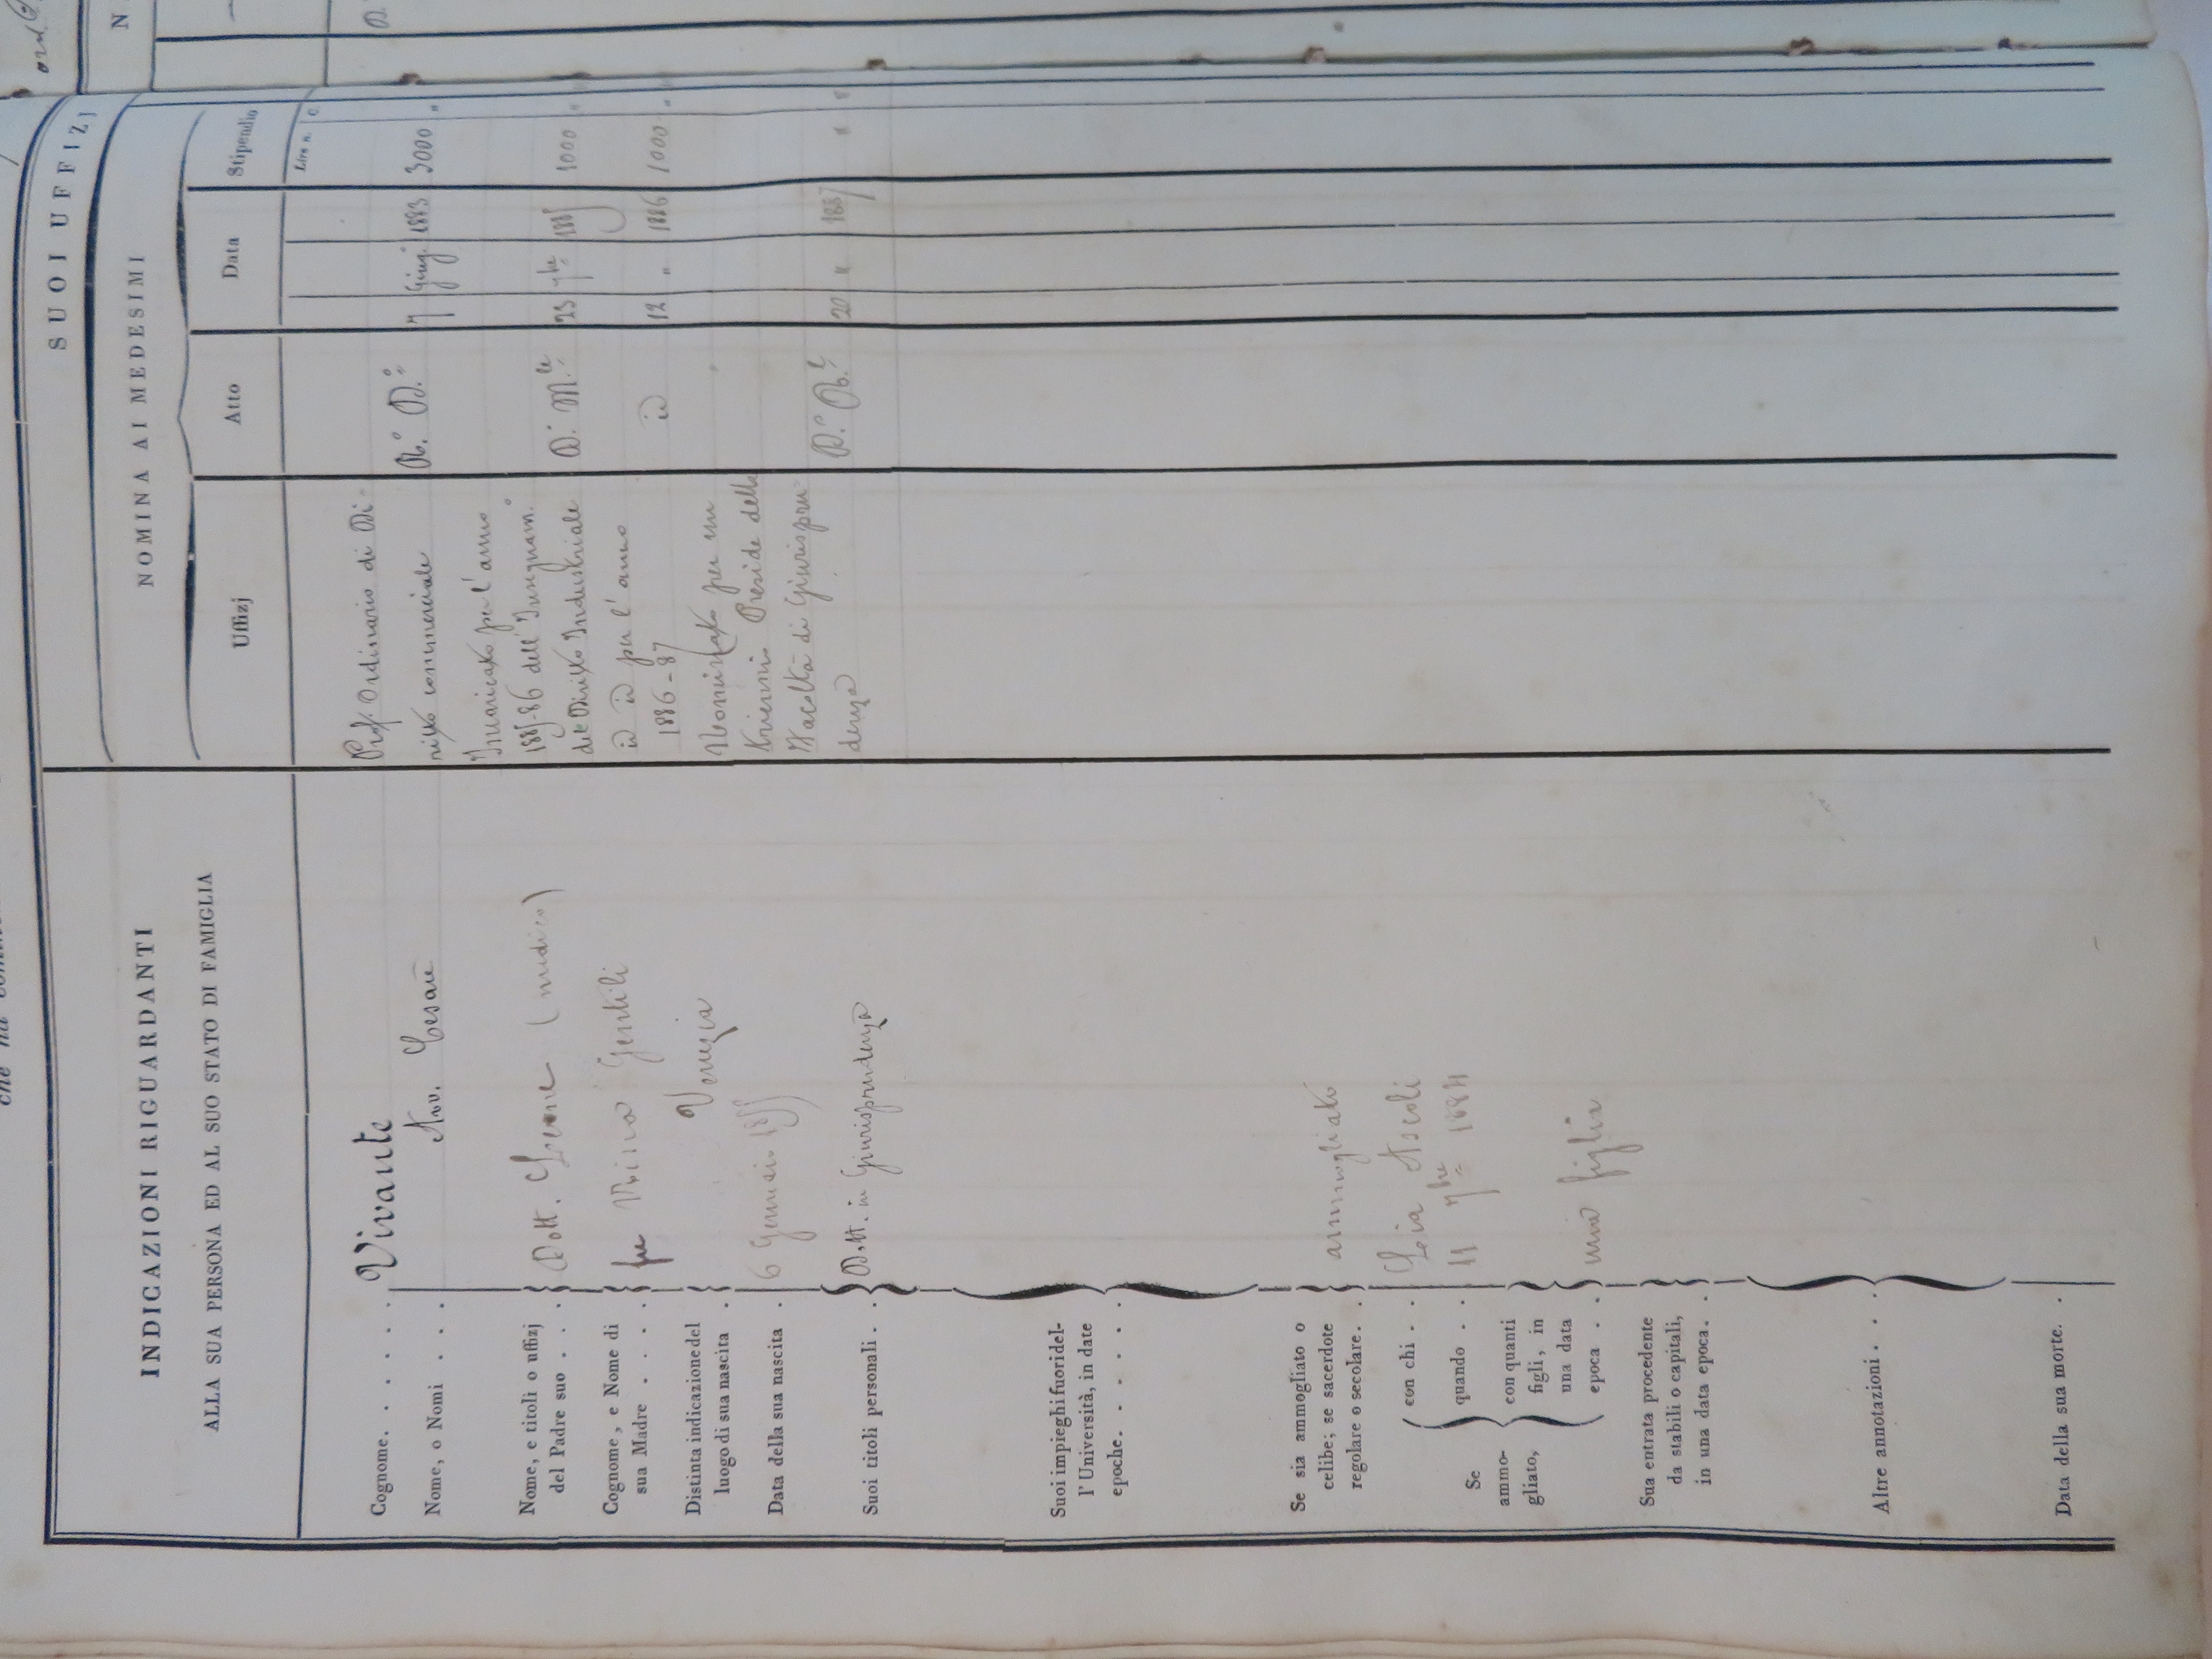 SUOI UFFIZJ
INDICAZIONI RIGUARDANTI
ALLA SUA PERSONA ED AL SUO STATO DI FAMIGLIA
NOMINA AI MEDESIMI
Uffizj
Atto
Data
Stipendio
Lire n. C.
Cognome. . . . .
Vivante
Nome, o Nomi . . .
Avv. Cesare
Nome, e titoli o uffizj
del Padre suo . . .
Dott. Leone (medico)
Cognome, e Nome di
sua Madre . . . .
fu Gentili
Distinta indicazione del
luogo di sua nascita .
Venezia
Data della sua nascita .
6 Gennaio 1855
Suoi titoli personali . .
Dott. in Giurisprudenza
Suoi impieghi fuori del-
l'Università, in date
epoche. . . . . .
Se sia ammogliato o
celibe; se sacerdote
regolare o secolare. .
ammogliato
Se
ammo-
gliato,
con chi . .
Leia Ascoli
quando . .
11 7bre 1884
con quanti
figli, in
una data
epoca . .
una figlia
Sua entrata procedente
da stabili o capitali,
in una data epoca. .
Altre annotazioni . . .
Data della sua morte. .
Prof. Ordinario di Di-
ritto commerciale
R.° D.° 7 Giug. 1883 3000 "
Incaricato per l'anno
1885-86 dell' Insegnam.°
del Diritto Industriale
D. M.le 23 9bre 1885 1000 "
id id per l'anno
1886-87
id 12 " 1886 1000 "
Nominato per un
triennio Preside della
Facoltà di Giurispru-
denza
20 " 1887 " "